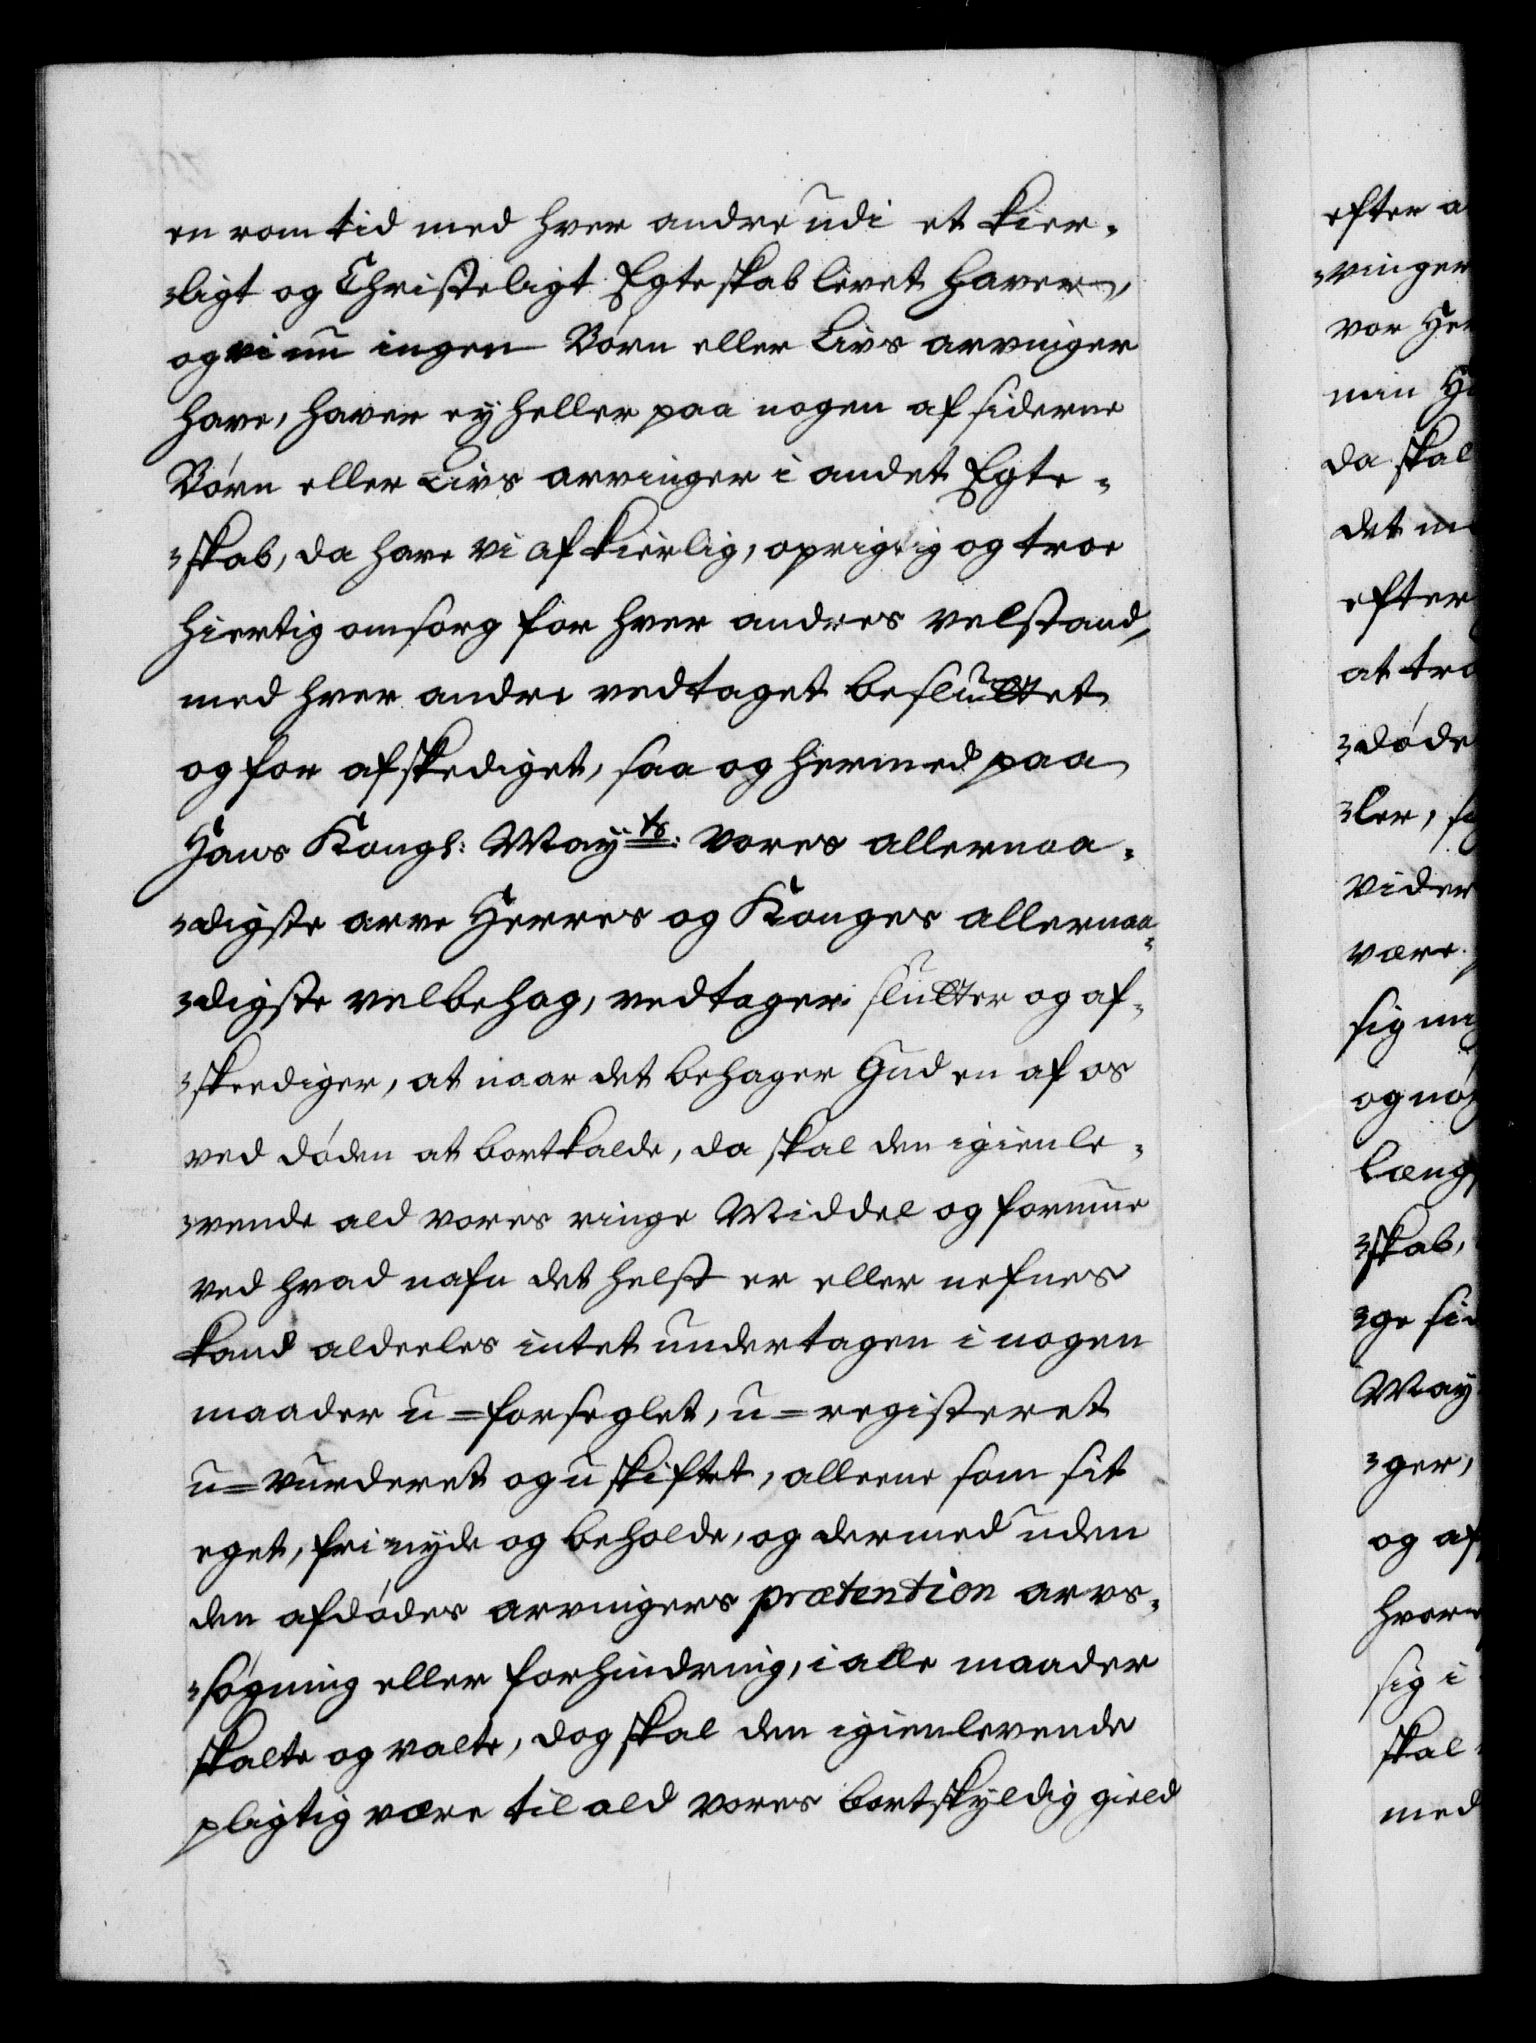 en rom tid med hver andre udi et kier-
-ligt og Christeligt Egteskab levet haver,
og vi nu ingen Børn eller Livs arvinger
have, haver ey heller paa nogen af siderne
Børn eller Livs arvinger i andet Egte-
-skab, da have vi af kierlig, oprigtig og troe
hiertig omsorg for hver andres velstand,
med hver andre vedtaget besluttet
og for afskediget, saa og hermed paa
Hans Kongl: May.ts: vores allernaa-
-digste arve Herres og Konges allernaa-
-digste velbehag, vedtager slutter og af-
-skeediger, at naar det behager Gud en af os
ved døden at bortkalde, da skal den igienle-
-vende ald vores ringe Middel og formue
ved hvad nafn det helst er eller nefnes
kand aldeeles intet undertagen i nogen
maader u=forseglet, u=registeret
u=vurderet og uskiftet, alleene som sit
eget, fri nyde og beholde, og dermed uden
den afdødes arvingers prætention arvs-
-søgning eller forhindring, i alle maader
skalte og valte, dog skal den igienlevende
pligtig være til ald vores bortskyldig gield
efter a
-vinger
vor Her
min H
da skal
det m
efter
at tr
-døde
-ler, s
vider
være
sig m
og nø
læng
-skab,
-ge si
May
-ger,
og af
hvor
sig i
skal
med